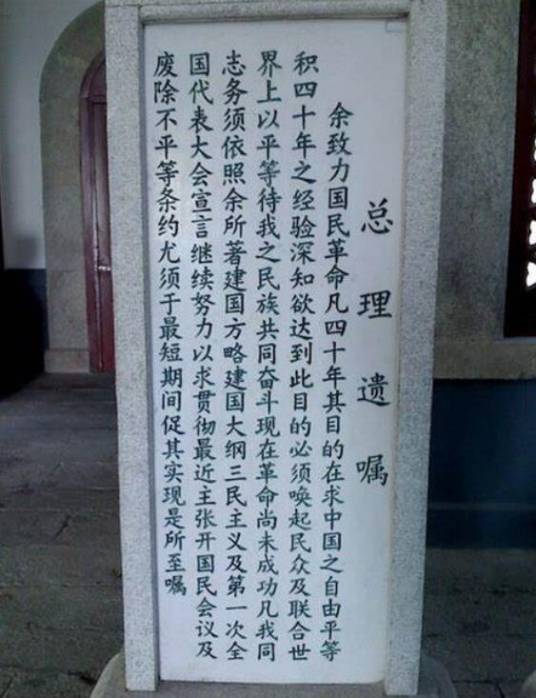 总理遗嘱
余致力国民革命凡四十年其目的在求中国之自由平等
积四十年之经验深知欲达到此目的必须唤起民众及联合世
界上以平等待我之民族共同奋斗现在革命尚未成功凡我同
志务须依照余所著建国方略建国大纲三民主义及第一次全
国代表大会宣言继续努力以求贯彻最近主张开国民会议及
废除不平等条约尤须于最短期间促其实现是所至嘱